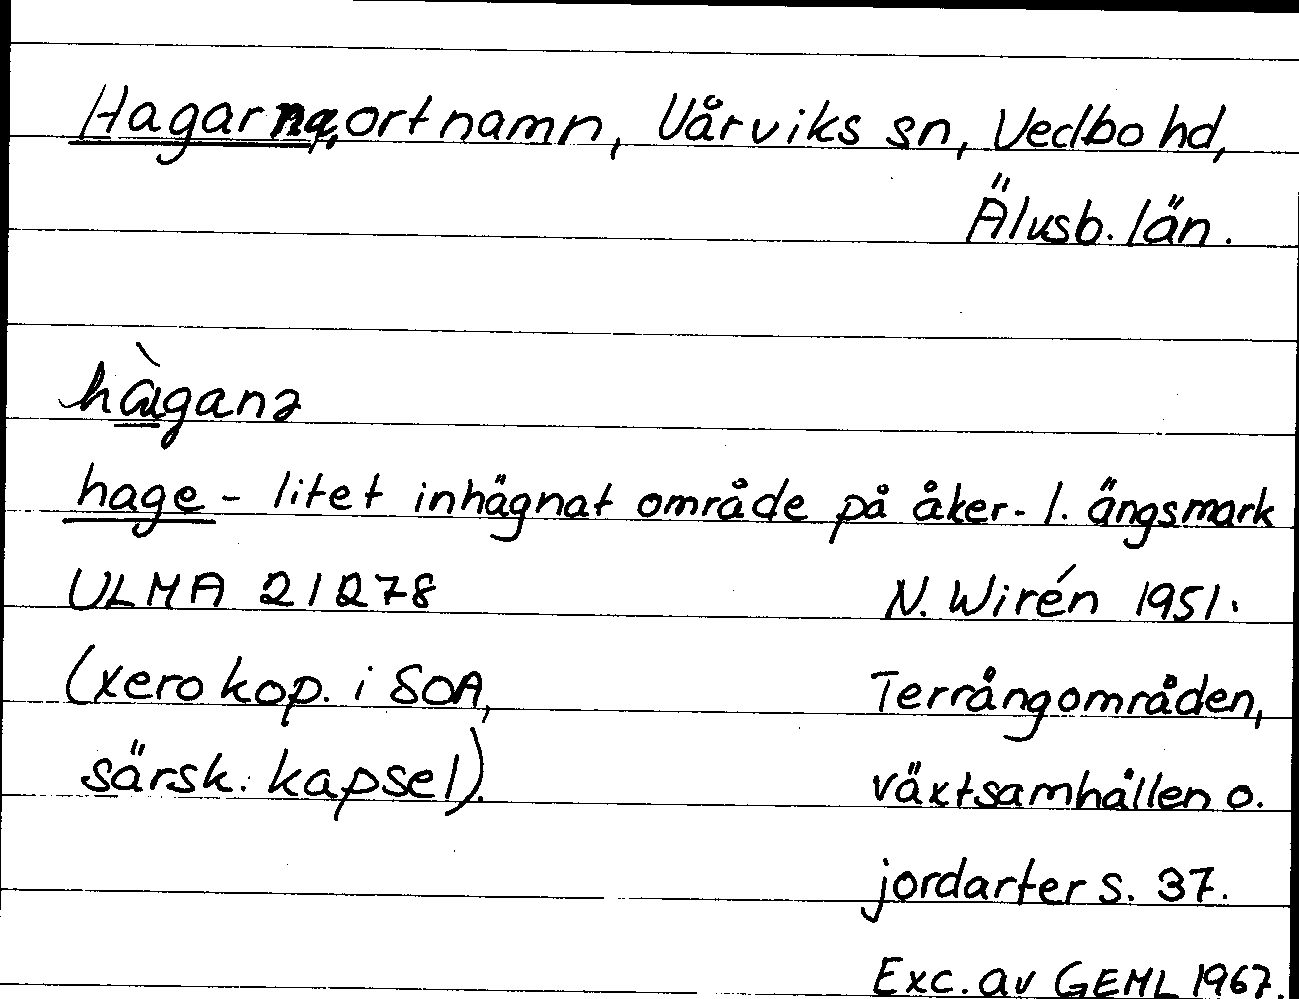 Hagarna, ortnamn, Vårviks sn, Vedbo hd,
Älvsb. län.
hàganə
hage - litet inhägnat område på åker- l. ängsmark
ULMA 21278 N. Wirén 1951.
(xerokop. i SOA, Terrängområden,
särsk. kapsel). växtsamhällen o.
jordarter s. 37.
Exc. av GEML 1967.